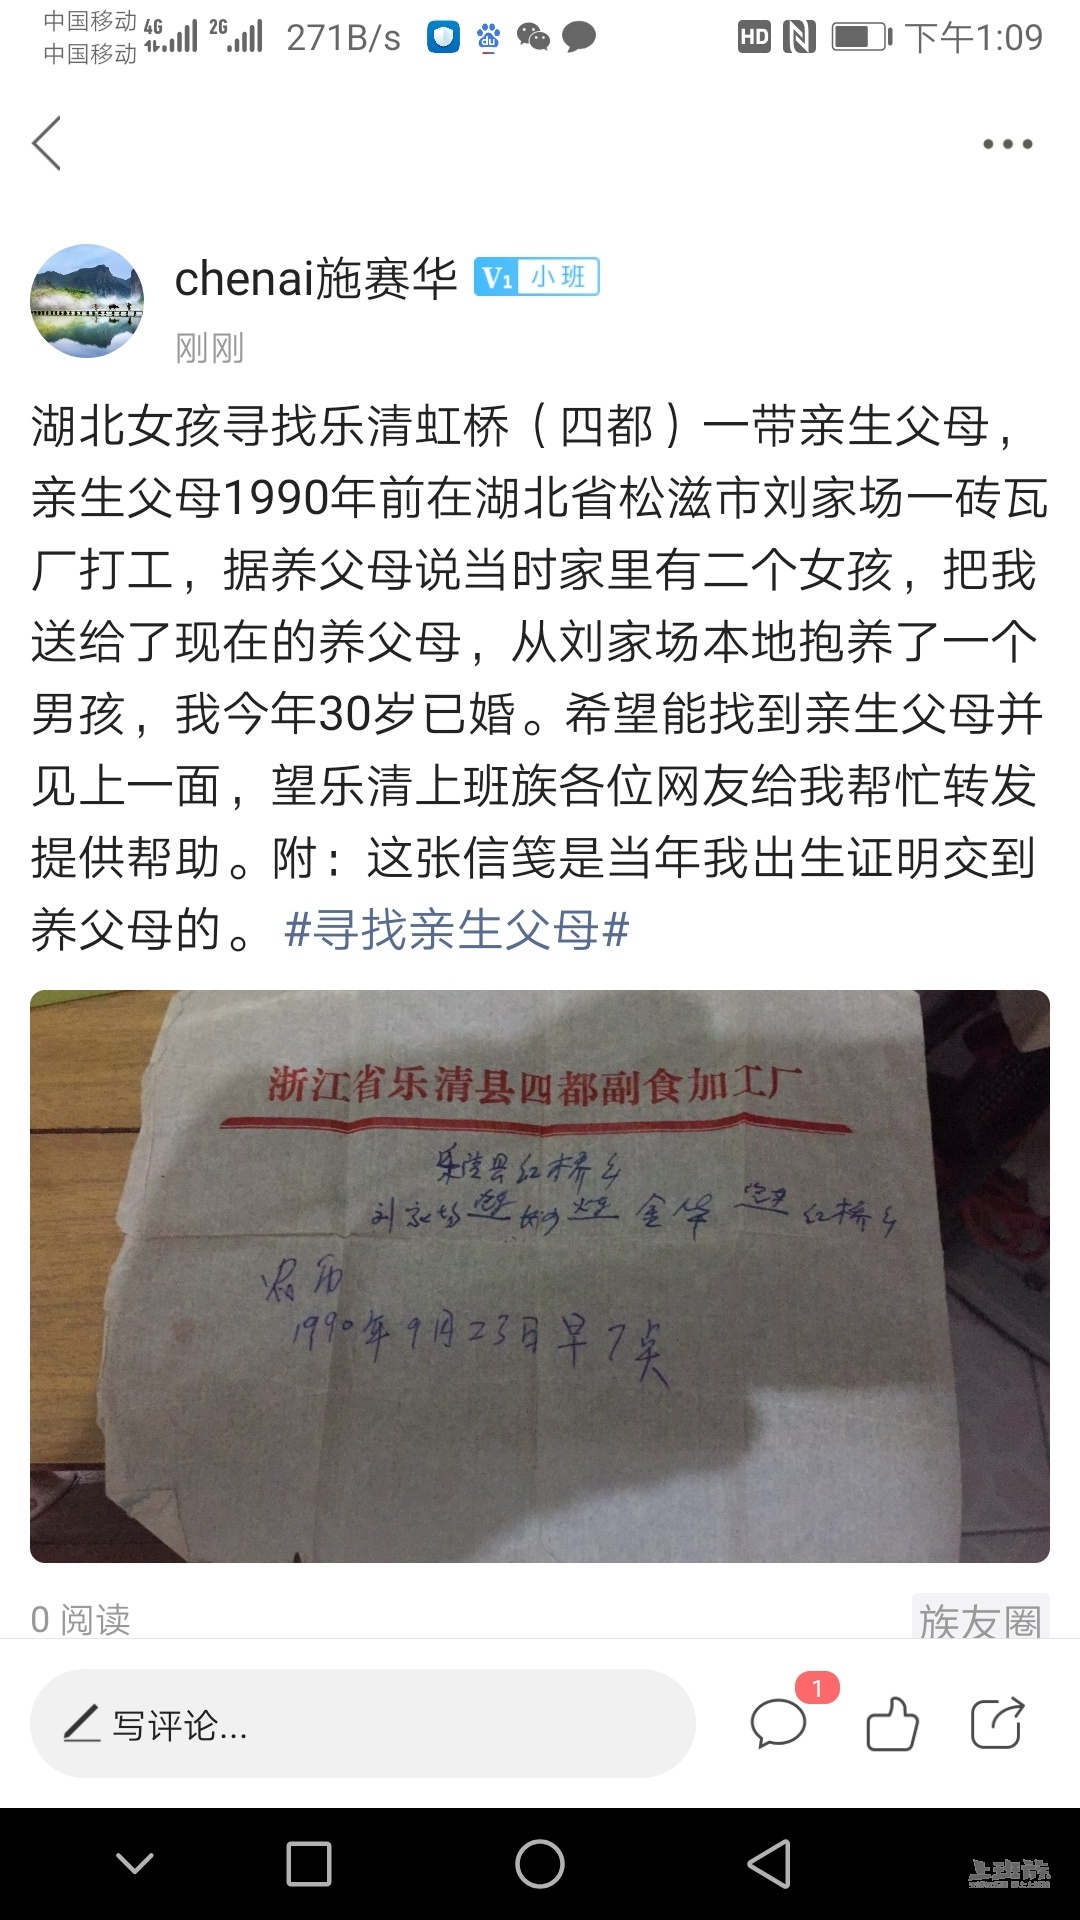 中国移动 4G 2G 271B/s HD 下午1:09
中国移动
chenai施赛华 V1 小班
刚刚
湖北女孩寻找乐清虹桥（四都）一带亲生父母，
亲生父母1990年前在湖北省松滋市刘家场一砖瓦
厂打工，据养父母说当时家里有二个女孩，把我
送给了现在的养父母，从刘家场本地抱养了一个
男孩，我今年30岁已婚。希望能找到亲生父母并
见上一面，望乐清上班族各位网友给我帮忙转发
提供帮助。附：这张信笺是当年我出生证明交到
养父母的。#寻找亲生父母#
浙江省乐清县四都副食加工厂
县红桥乡
刘家场 金华 红桥乡
农历
1990年9月23日早7点
0 阅读 族友圈
写评论... 1
上班族